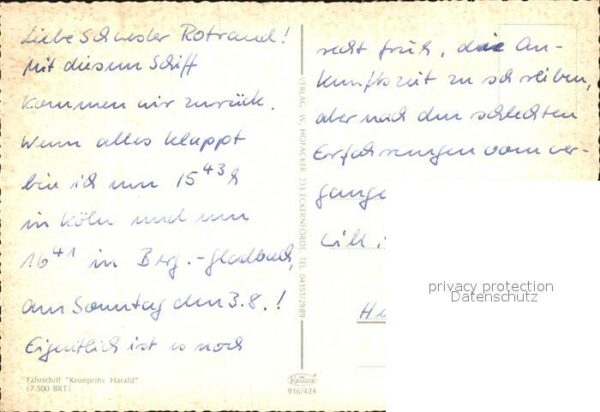 Liebe Schwester Rotraud!
Mit diesem Schiff
kommen wir zurück.
Wenn alles klappt
bin ich um 15 43 h
in Köln und um
16 41 in Berg.-Gladbach,
am Sonntag den 3.8.!
Eigentlich ist es noch
Fährschiff "Kronprins Harald"
(7.500 BRT)
VERLAG W. HOFACKER 233 ECKERNFÖRDE TEL. 04351/2989
KRÜGER
916/424
recht früh, die An-
kunftszeit zu schreiben,
aber nach den schlechten
Erfahrungen vom ver-
gange
privacy protection
Datenschutz